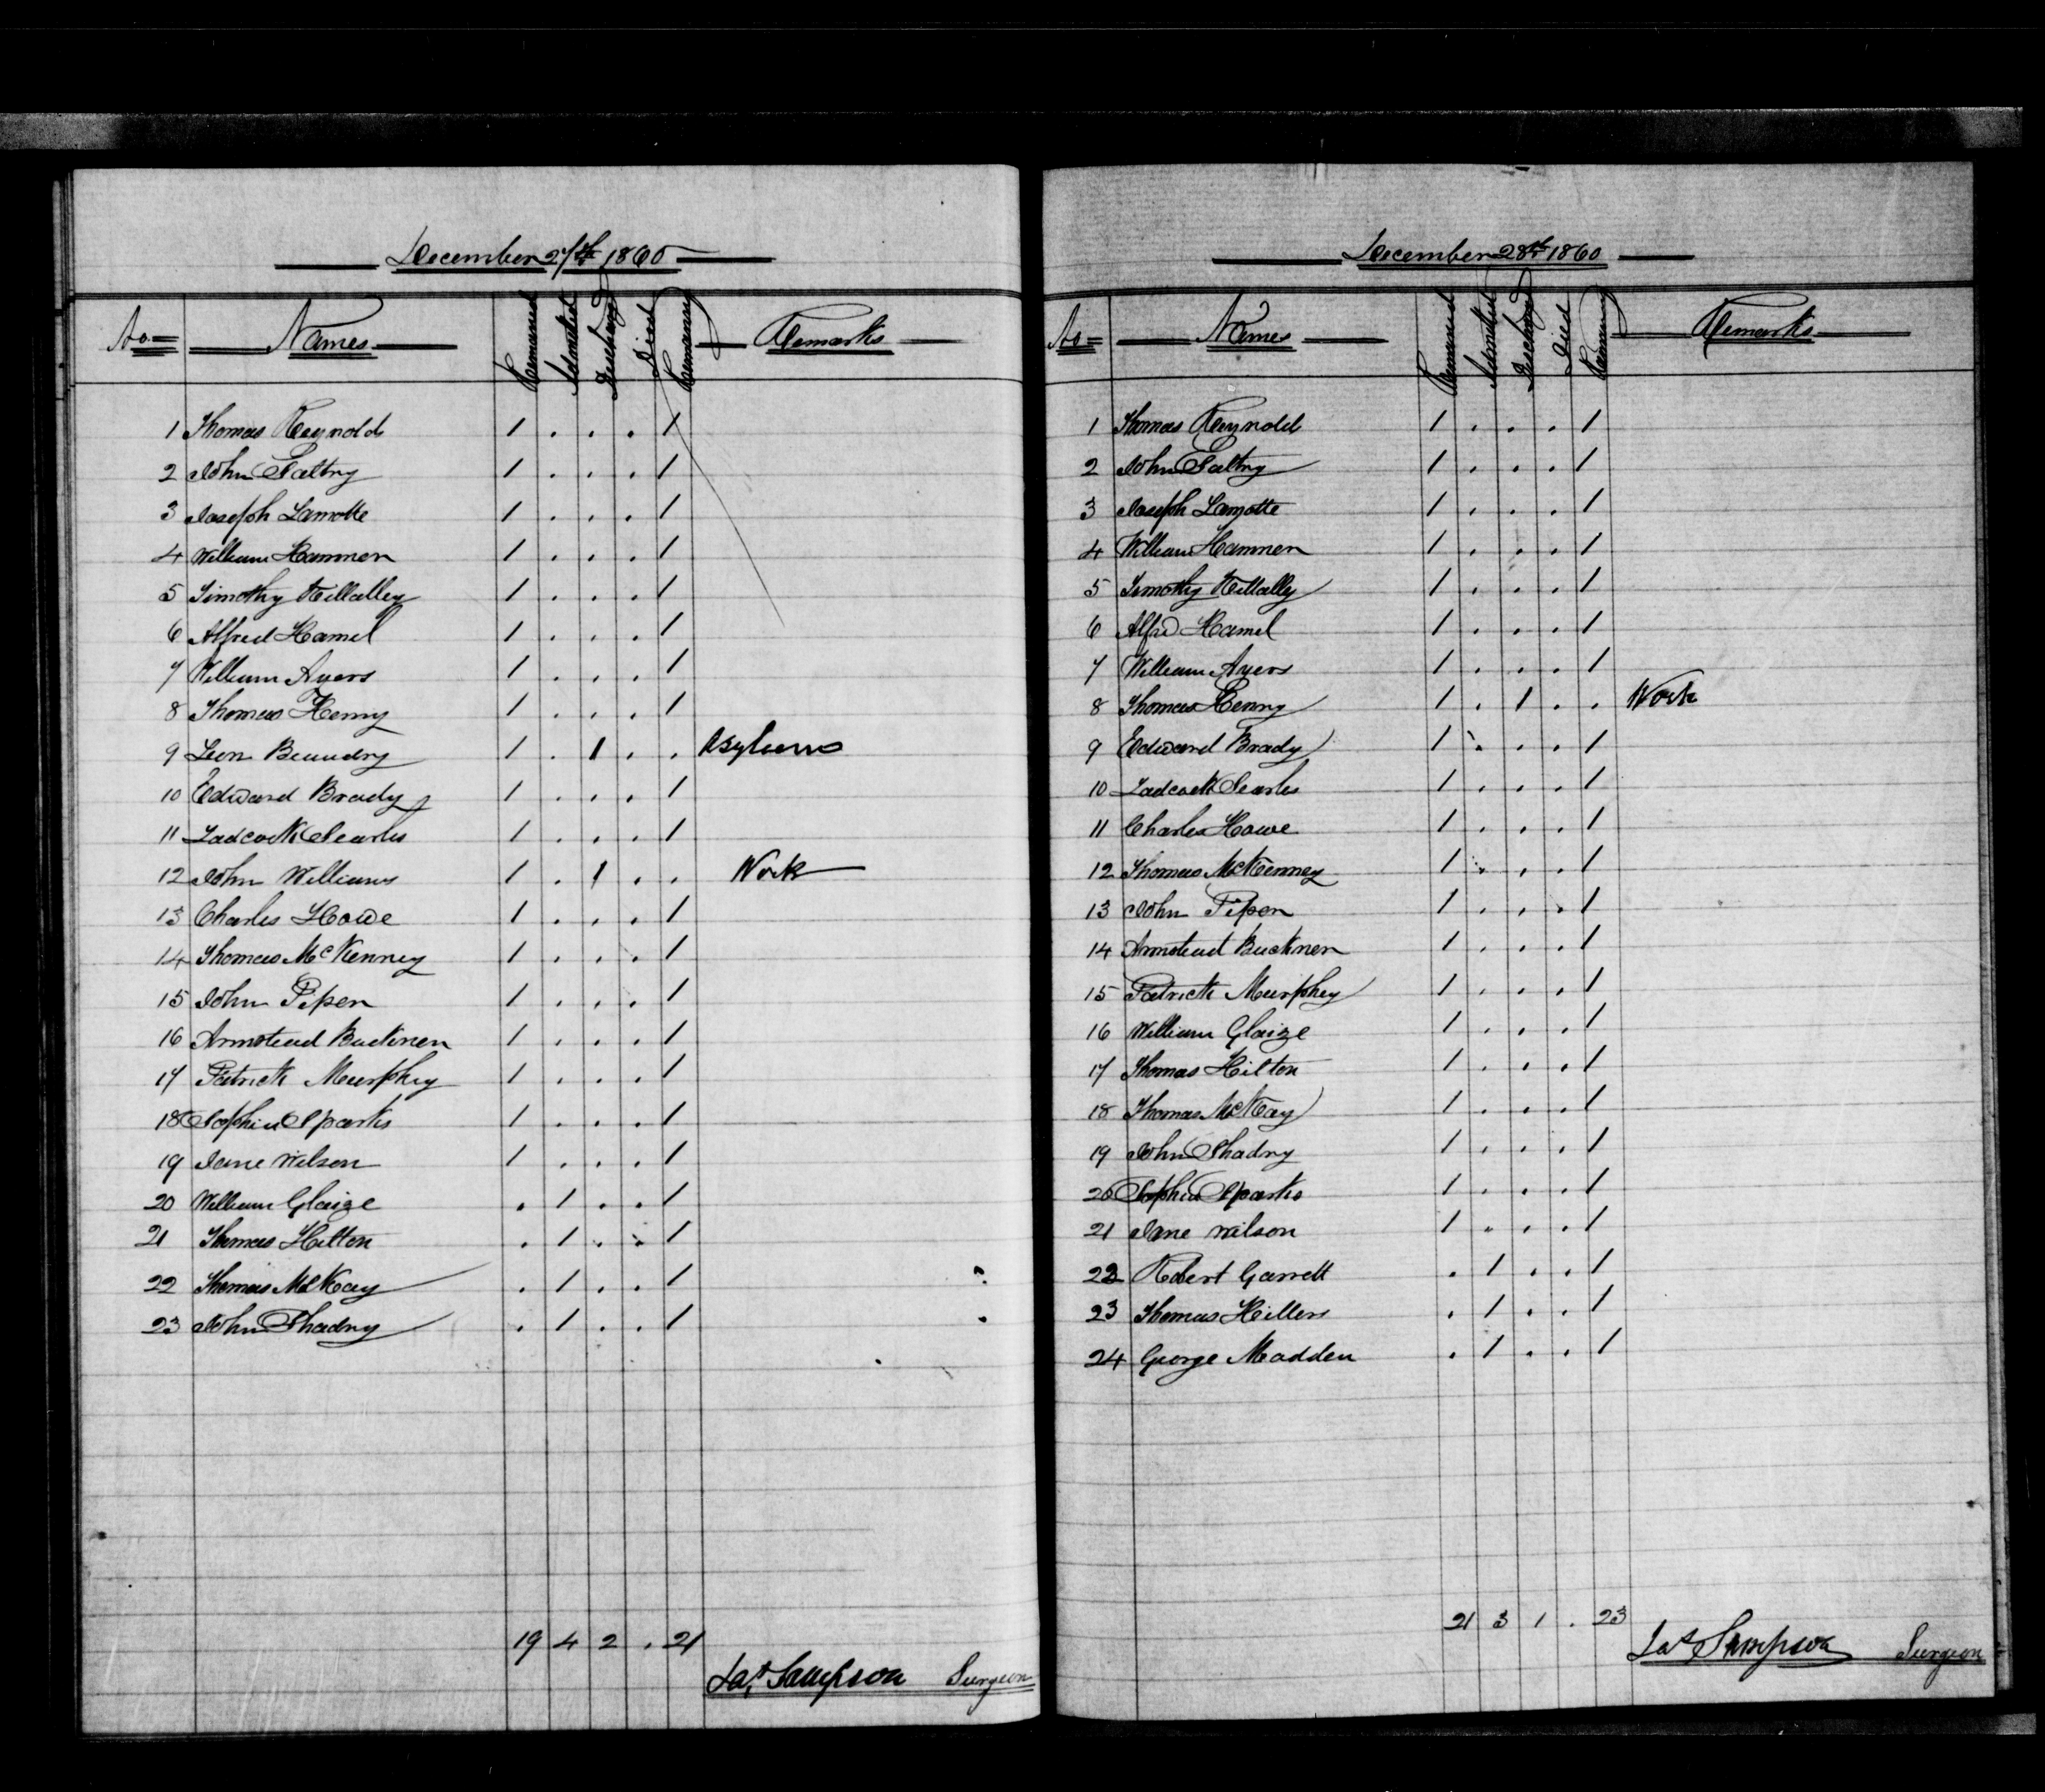 December 27th 1860
No Names Remained Admitted Discharged Died Remaining Remarks
1 Thomas Reynolds 1 . . . 1
2 John Saltry 1 . . . 1
3 Joseph Lamotte 1 . . . 1
4 William Hammen 1 . . . 1
5 Timothy Killalley 1 . . . 1
6 Alfred Hamel 1 . . . 1
7 William Ayers 1 . . . 1
8 Thomas Henry 1 . . . 1
9 Leon Beaudry 1 . 1 . . Asylum
10 Edward Brady 1 . . . 1
11 Ladcock Searles 1 . . . 1
12 John Williams 1 . 1 . . Work
13 Charles Howe 1 . . . 1
14 Thomas McKenney 1 . . . 1
15 John Piper 1 . . . 1
16 Armstead Buckner 1 . . . 1
17 Patrick Murphey 1 . . . 1
18 Sophia Sparks 1 . . . 1
19 Jane Wilson 1 . . . 1
20 William Glaize . 1 . . 1
21 Thomas Hilton . 1 . . 1
22 Thomas McKay . 1 . . 1
23 John Shadry . 1 . . 1
19 4 2 . 21
Jas Sampson Surgeon
December 28th 1860
No Names Remained Admitted Discharged Died Remaining Remarks
1 Thomas Reynolds 1 . . . 1
2 John Saltry 1 . . . 1
3 Joseph Lamotte 1 . . . 1
4 William Hammen 1 . . . 1
5 Timothy Killally 1 . . . 1
6 Alfred Hamel 1 . . . 1
7 William Ayers 1 . . . 1
8 Thomas Henry 1 . 1 . . Work
9 Edward Brady 1 . . . 1
10 Ladcock Searles 1 . . . 1
11 Charles Howe 1 . . . 1
12 Thomas McKenney 1 . . . 1
13 John Piper 1 . . . 1
14 Armstead Buckner 1 . . . 1
15 Patrick Murphey 1 . . . 1
16 William Glaize 1 . . . 1
17 Thomas Hilton 1 . . . 1
18 Thomas McKay 1 . . . 1
19 John Shadry 1 . . . 1
20 Sophia Sparks 1 . . . 1
21 Jane Wilson 1 . . . 1
22 Robert Garrett . 1 . . 1
23 Thomas Hillers . 1 . . 1
24 George Madden . 1 . . 1
21 3 1 . 23
Jas Sampson Surgeon